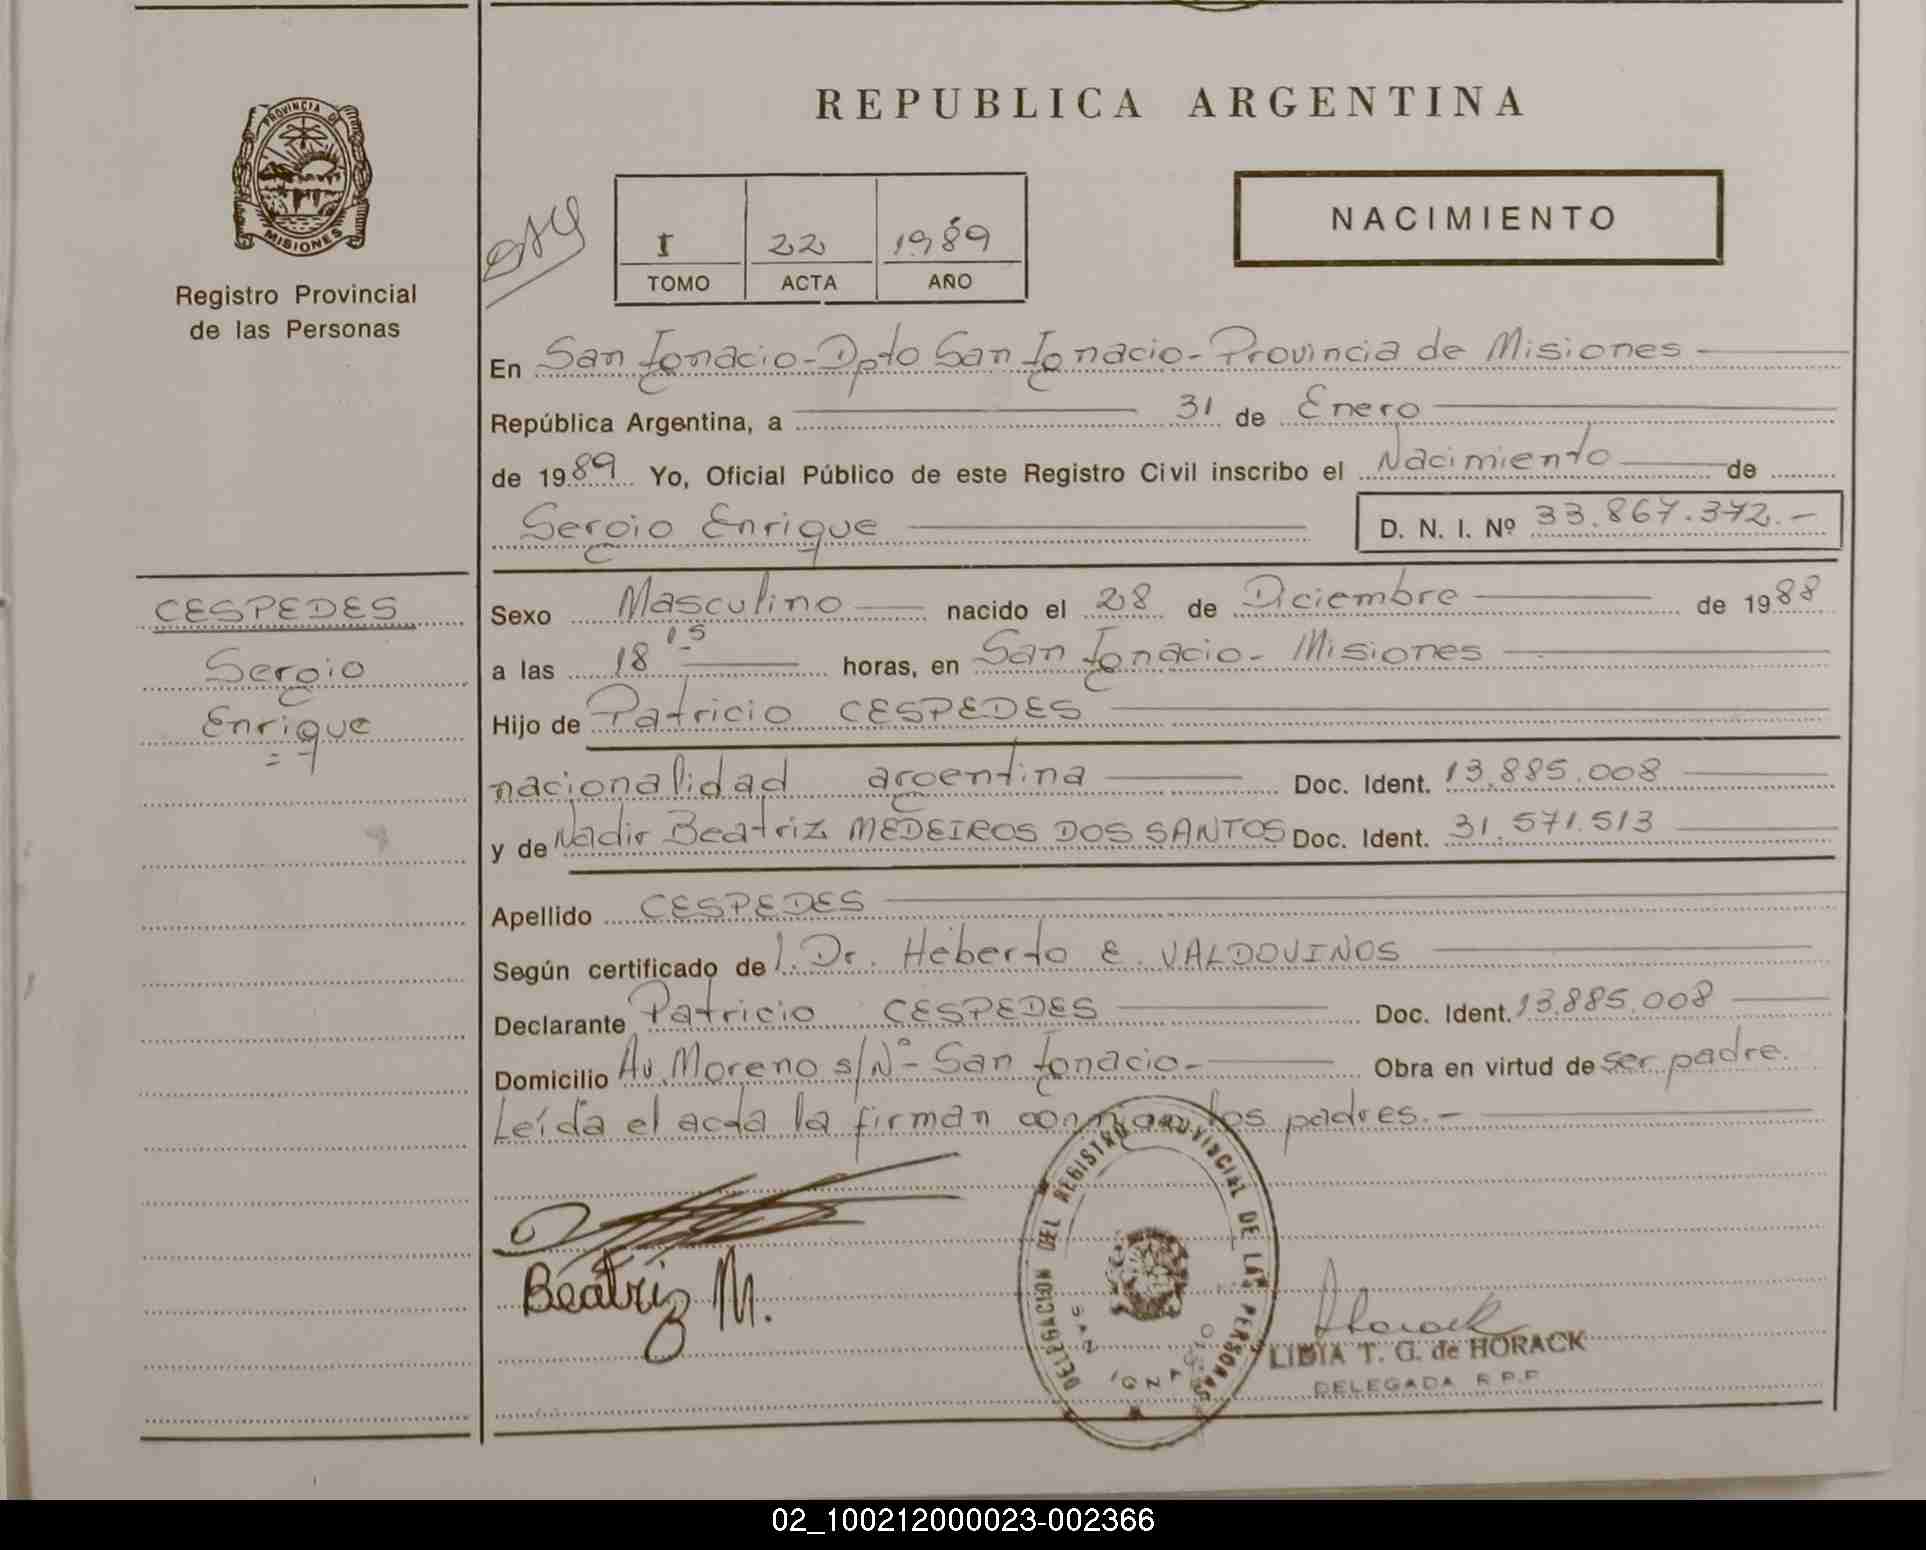 REPUBLICA ARGENTINA
PROVINCIA DE
MISIONES
Registro Provincial
de las Personas
I 22 1989
TOMO ACTA AÑO
NACIMIENTO
En San Ignacio - Dpto San Ignacio - Provincia de Misiones
República Argentina, a 31 de Enero
de 1989 Yo, Oficial Público de este Registro Civil inscribo el Nacimiento de
Sergio Enrique D. N. I. Nº 33.867.372.-
CESPEDES
Sergio
Enrique
Sexo Masculino nacido el 28 de Diciembre de 1988
a las 18 15 horas, en San Ignacio - Misiones
Hijo de Patricio CESPEDES
nacionalidad argentina Doc. Ident. 13.885.008
y de Nadir Beatriz MEDEIROS DOS SANTOS Doc. Ident. 31.571.513
Apellido CESPEDES
Según certificado de l. Dr. Heberto E. VALDOVINOS
Declarante Patricio CESPEDES Doc. Ident. 13.885.008
Domicilio Av. Moreno s/Nº - San Ignacio - Obra en virtud de ser padre.
Leída el acta la firman conmigo los padres.-
Beatriz M.
DELEGACION DEL REGISTRO PROVINCIAL DE LAS PERSONAS
SAN IGNACIO
Horack
LIDIA T. G. de HORACK
DELEGADA R.P.P
02_100212000023-002366